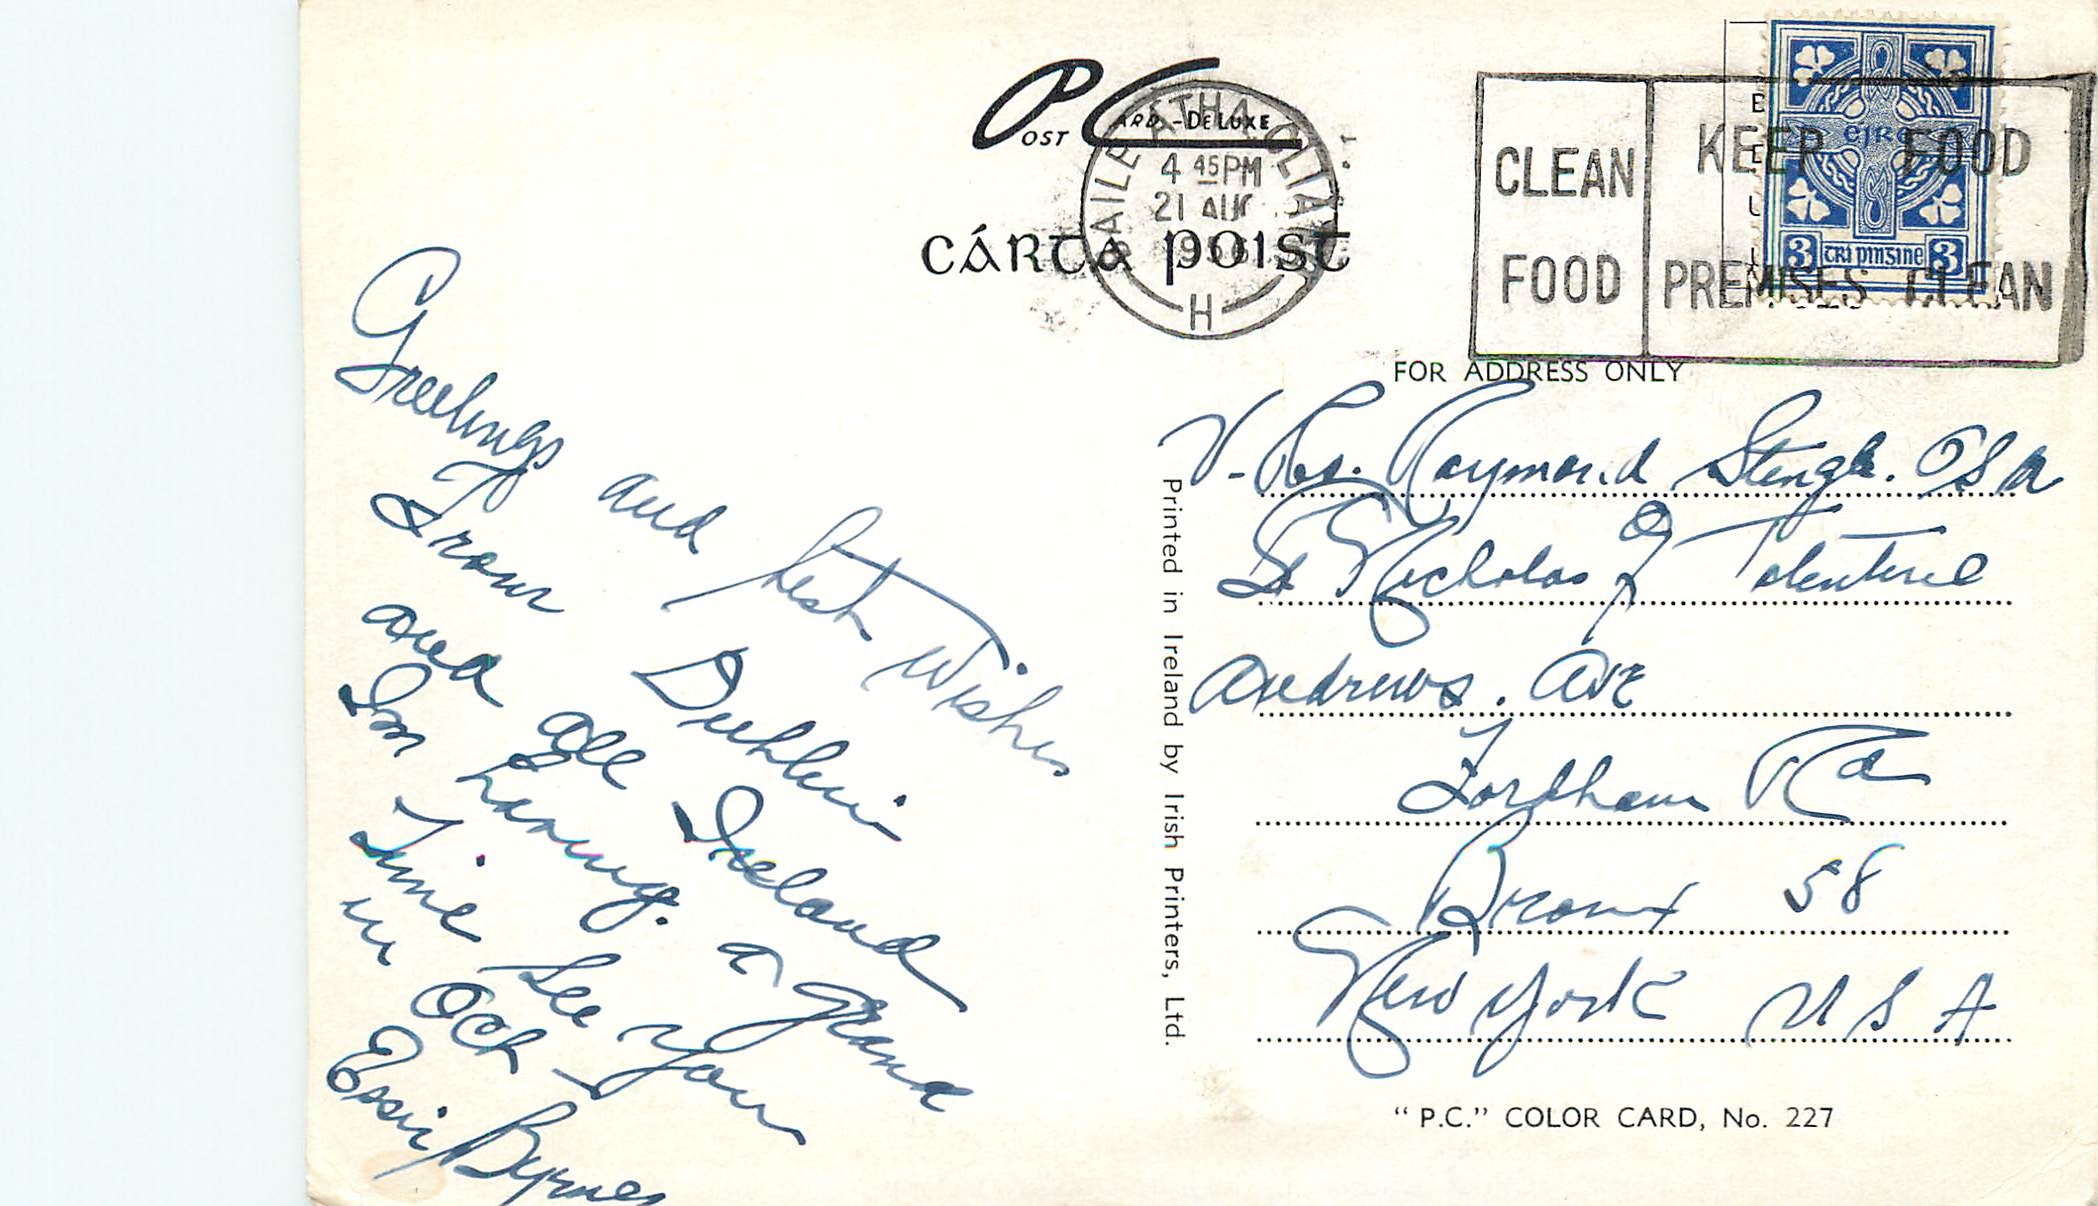 Post Card - De Luxe
BAILE ÁTHA CLIATH
4 45PM
21 AUG
H
CÁRTA POIST
CLEAN FOOD
KEEP FOOD PREMISES CLEAN
EIRE
3 TRI PINGINE 3
FOR ADDRESS ONLY
Greetings and best wishes
From Dublin
and all Ireland
Im having. a grand
Time See you
in Oct -
Essie Byrnes
Printed in Ireland by Irish Printers, Ltd.
V. Rev. Raymond OSA
St Nicholas of Tolentine
Andrews. Ave
Fordham Rd
Bronx 58
New York USA
"P.C." COLOR CARD, No. 227